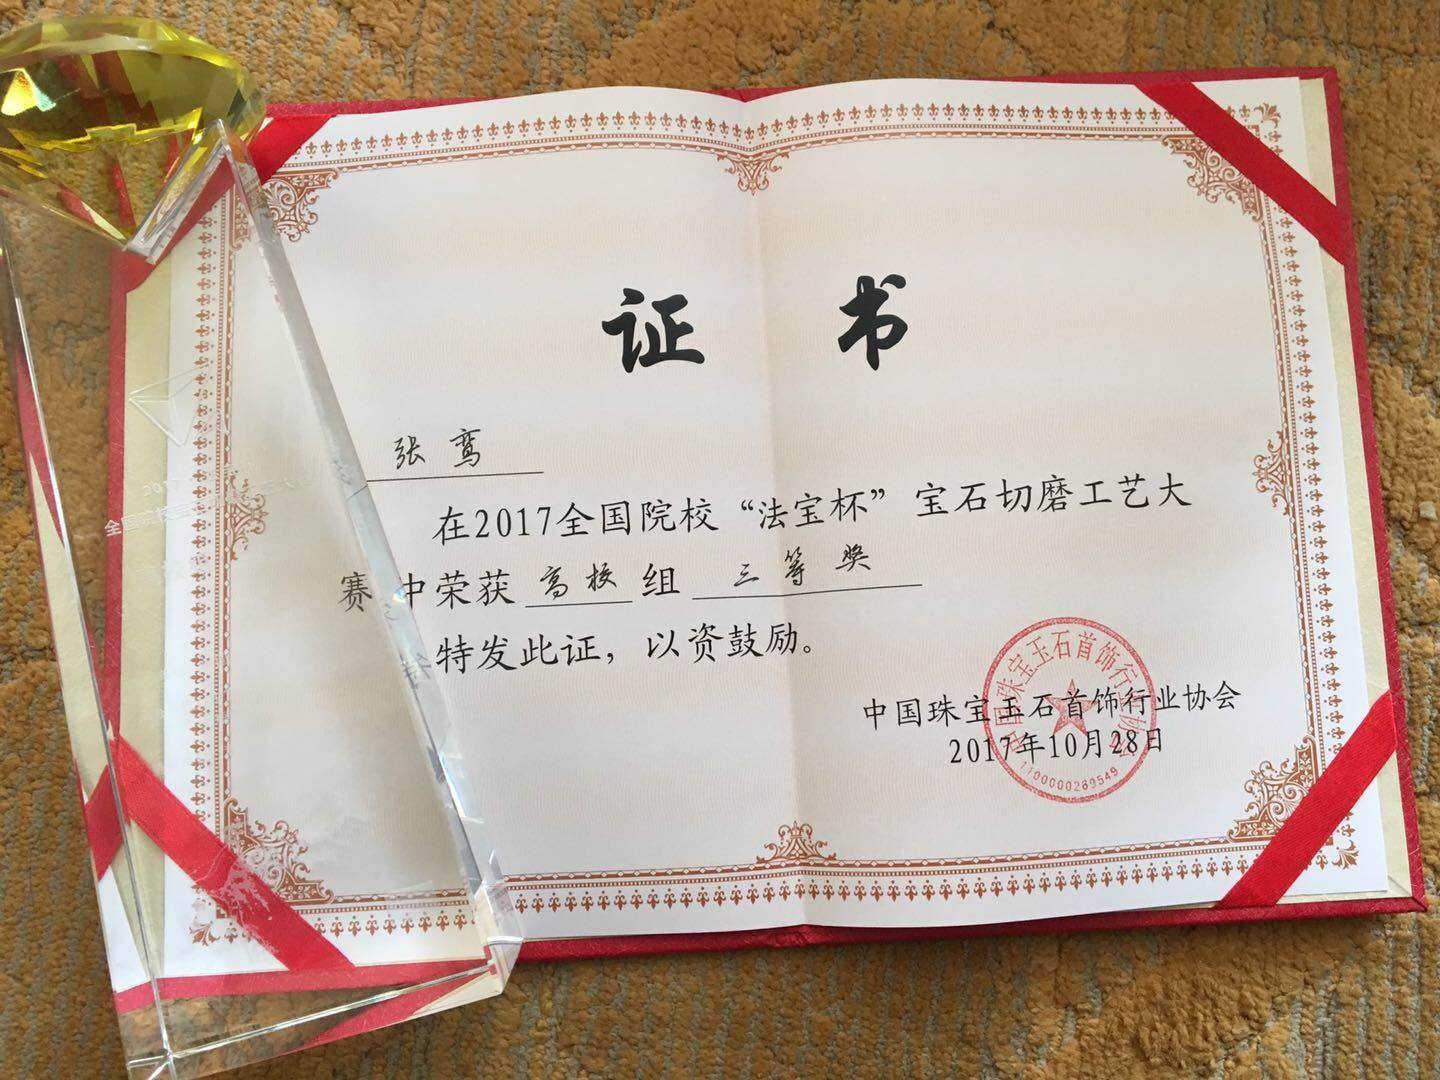 证 书
张鸾
在2017全国院校“法宝杯”宝石切磨工艺大
赛 中荣获 高校 组 三等奖
特发此证，以资鼓励。
中国珠宝玉石首饰行业协会
2017年10月28日
中国珠宝玉石首饰行业协会
1100000269549
2017
全国院校